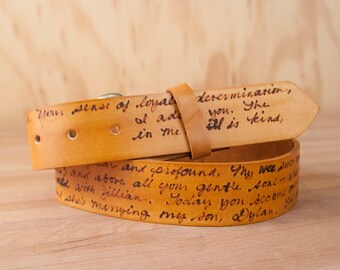 Your sense of loyalty, determination,
I adore you. The
in me is kind,
and profound. This wee
and above all your gentle soul
with Jillian. Today you become
she's marrying my son, Dylan.